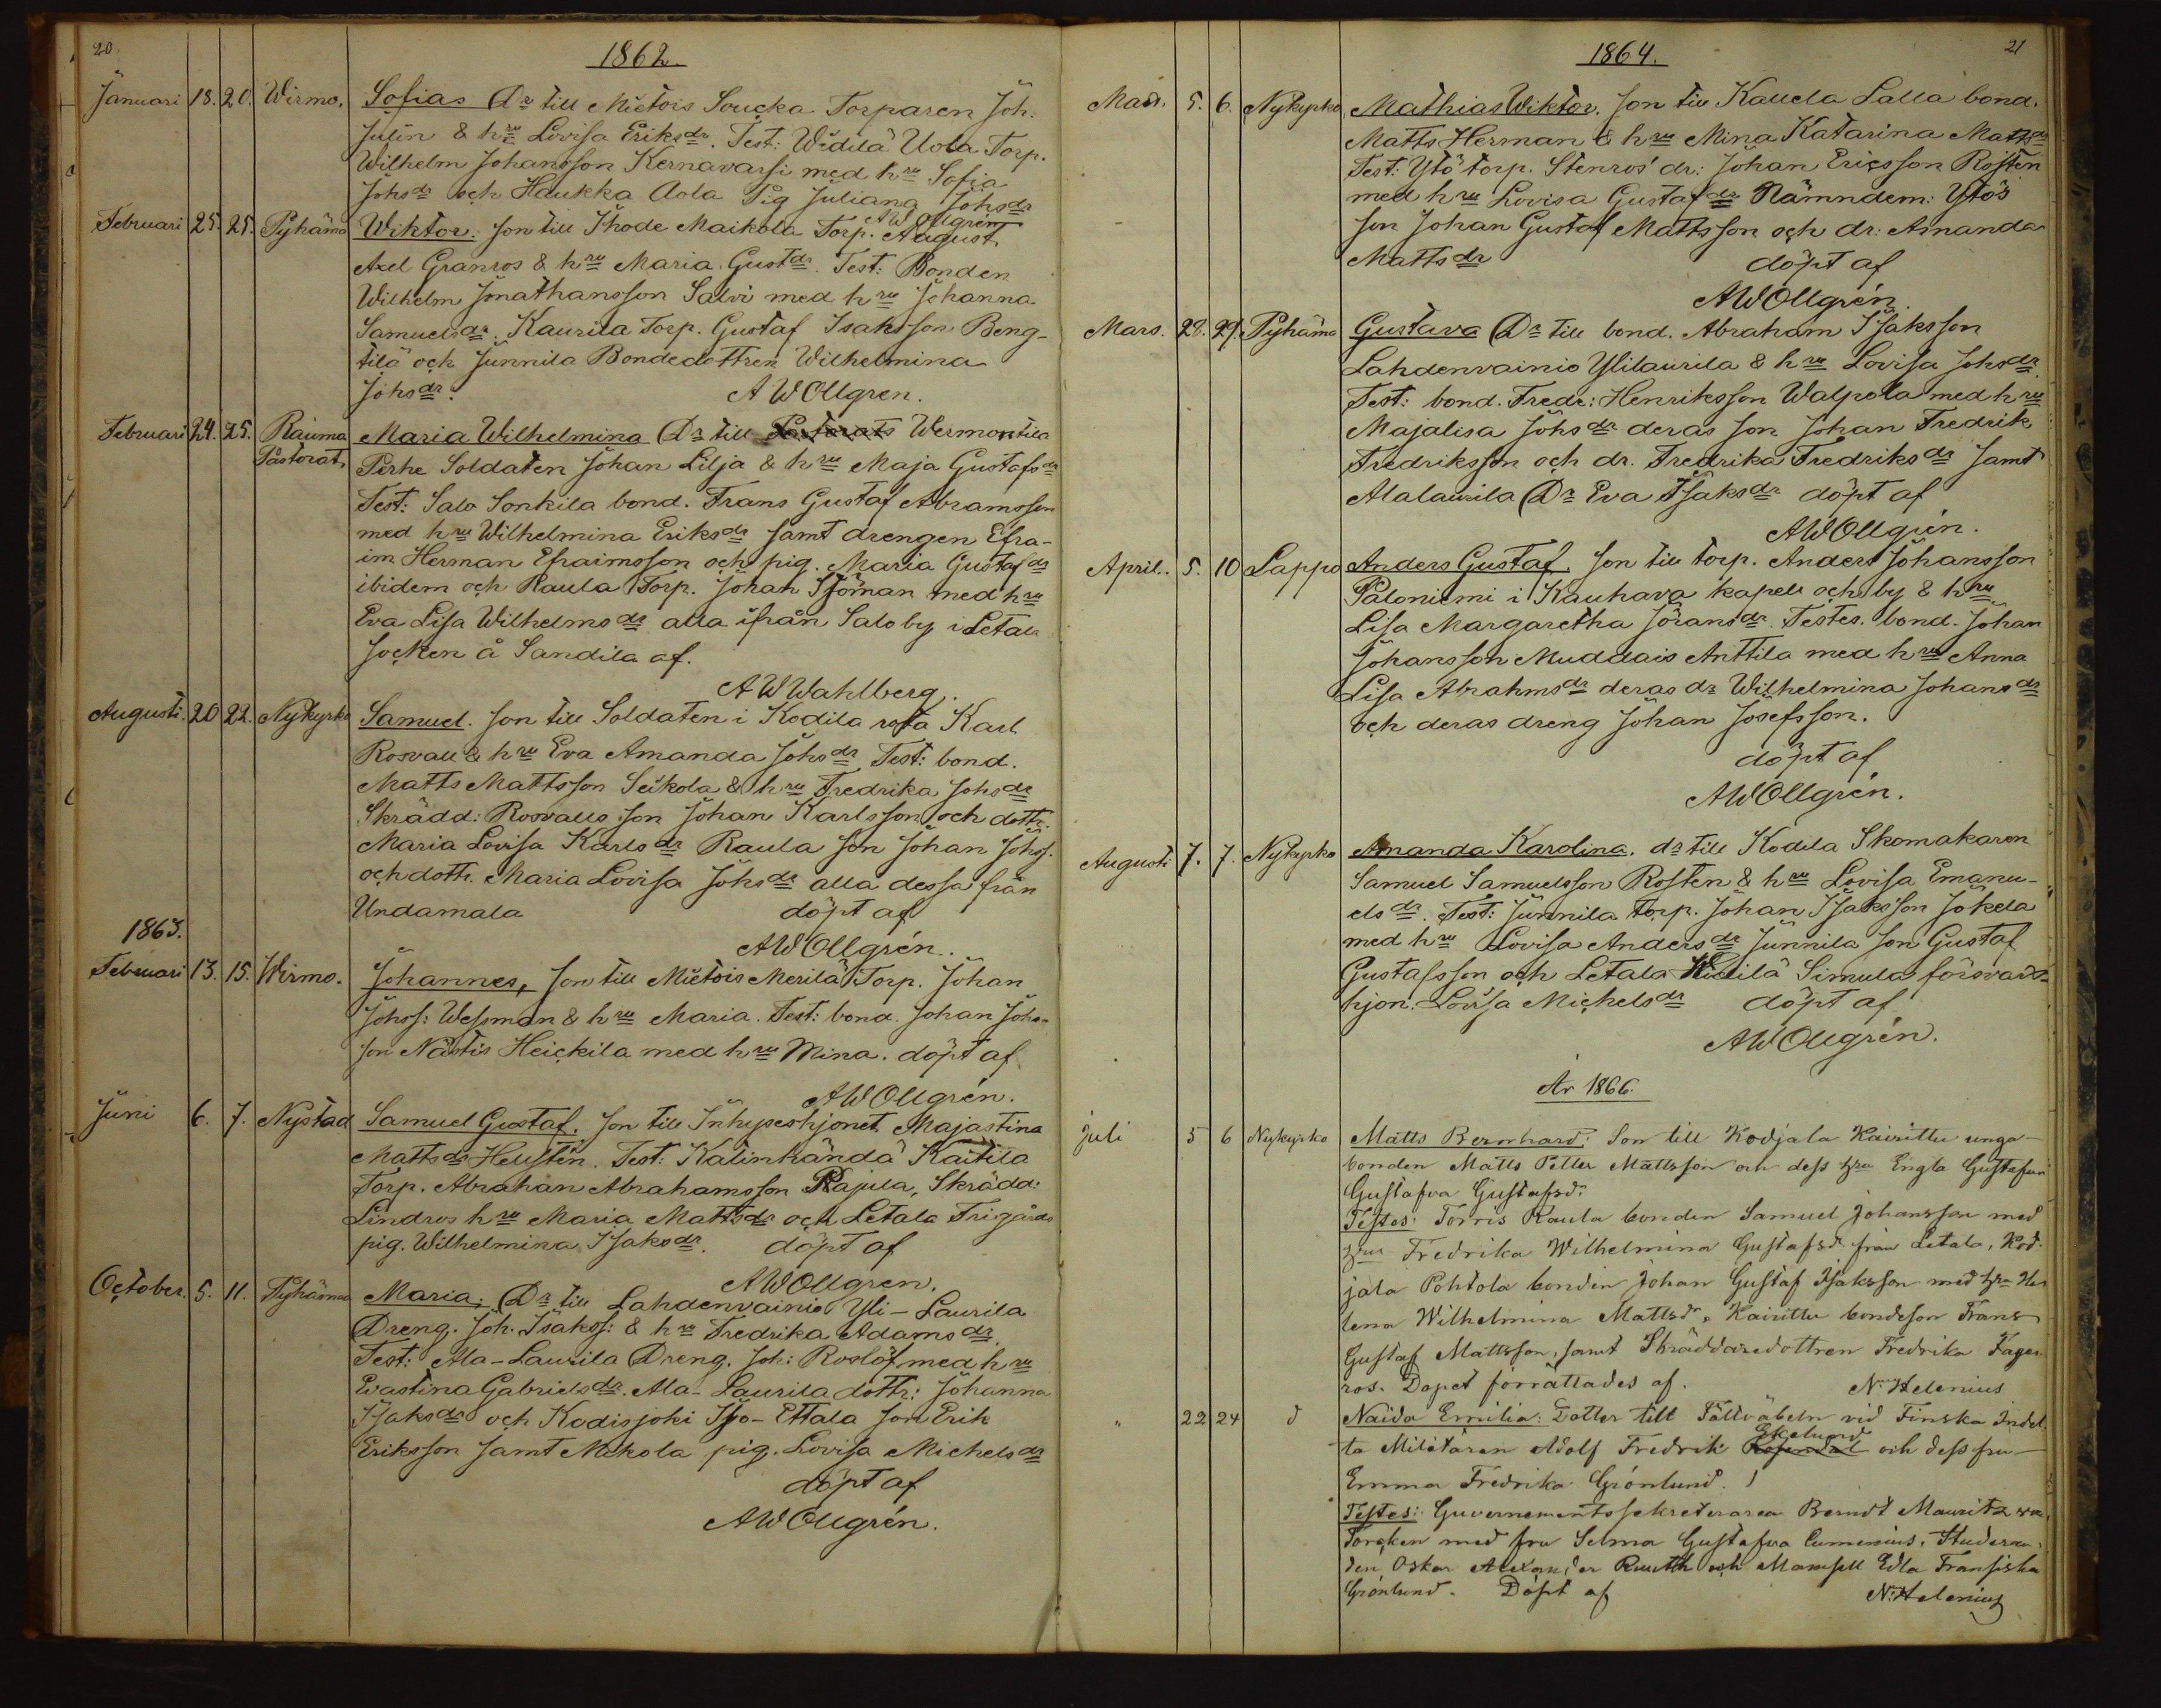 20
1862
Januari 18. 20. Wirmo. Sofia. Dr till Mietois Soucka Torparen Joh.
Julin & hru Lovisa Eriksdr. Test: Widilä Uola Torp.
Wilhelm Johansson Kernavarsi med hru Sofia
Johsdr och Haukka Aola Pig Juliana Johsdr
AW Ollgren
Februari 25. 25. Pyhämo Wiktor: son till Ihode Maikola Torp. August
Axel Granros & hru Maria Gustdr. Test: Bonden
Wilhelm Jonathansson Salvi med hru Johanna
Samuelsdr. Kaurila Torp. Gustaf Isaksson Beng-
tilä och Junnila Bondedottren Wilhelmina
Johsdr. AWOllgren.
Februari 24. 25. Rauma Maria Wilhelmina Dr till Pastorats Wermontila
Pastorat. Perhe Soldaten Johan Lilja & hru Maja Gustafsdr
Test: Salo Sonkila bond. Frans Gustaf Abramsson
med hru Wilhelmina Eriksdr samt drengen Efra-
im Herman Efraimsson och pig. Maria Gustafdr
ibidem och Raula Torp. Johan Sjöman med hru
Eva Lisa Wilhelmsdr alla ifrån Salo by i Letala
Socken å Sandila af.
AW Wahlberg.
Augusti. 20 22. Nykyrko Samuel. Son till Soldaten i Kodila rota Karl
Rosvall & hru Eva Amanda Johsdr Test: bond.
Matts Mattsson Seikola & hru Fredrika Johsdr
Skrädd: Rosvalls son Johan Karlsson och dottr.
Maria Lovisa Karlsdr Raula son Johan Johss.
och dottr. Maria Lovisa Johsdr alla dessa från
Undamala döpt af
AWOllgrén.
1863.
Februari 13. 15. Wirmo. Johannes, Son till Mietois Merilä Torp. Johan
Johss: Wessman & hru Maria. Test: bond. Johan Johs-
son Nästis Heickila med hru Mina. döpt af
AWOllgrén.
Juni 6. 7. Nystad Samuel Gustaf. Son till Inhyseshjonet Majastina
Mattsdr Hellstén. Test: Kalinhändä Kaitila
Torp. Abraham Abrahamsson Rajula, Skrädd:
Lindros hru Maria Mattsdr och Letala Frigårds
pig. Wilhelmina Isaksdr. döpt af
AWOllgren.
October. 5. 11. Pyhämo Maria: Dr till Lahdenvainio Yli-Laurila
Dreng. Joh. Isakss: & hru Fredrika Adamsdr.
Test: Ala-Laurila Dreng. Joh: Roslöf med hru
Evastina Gabrielsdr. Ala-Laurila dottr: Johanna
Isaksdr och Kodisjoki Iso-Ettala son Erik
Eriksson samt Nikola pig. Lovisa Michelsdr
döpt af
AWOllgrén.
21
1864.
Mars. 5. 6. Nykyrko Mathias Wiktor. Son till Kallela Lalla bond.
Matts Herman & hru Mina Katarina Mattsdr
Test: Ytö torp. Stenros' dr: Johan Ericsson Rostén
med hru Lovisa Gustafdr Nämndem: Ytö's
son Johan Gustaf Mattsson och dr: Amanda
Mattsdr döpt af
AWOllgrén.
Mars. 28. 29. Pyhämo Gustava Dr till bond. Abraham Isaksson
Lahdenvainio Ylilaurila & hru Lovisa Johsdr.
Test: bond. Fredr: Henriksson Walpola med hru
Majalisa Johsdr deras son Johan Fredrik
Fredriksson och dr. Fredrika Fredriksdr samt
Alalaurila Dr Eva Isaksdr döpt af
AWOllgrén.
April. 5. 10 Lappo Anders Gustaf. Son till torp. Anders Johansson
Paloniemi i Kauhava kapell och by & hru
Lisa Margaretha Jöransdr. Testes. bond. Johan
Johansson Muddais Anttila med hru Anna
Lisa Abrahmsdr deras dr Wilhelmina Johansdr
och deras dreng Johan Josefsson.
döpt af
AWOllgrén.
Augusti 7. 7. Nykyrko Amanda Karolina. dr till Kodila Skomakaren
Samuel Samuelsson Rosten & hru Lovisa Emanu-
elsdr. Test: Junnila Torp. Johan Isaksson Jokela
med hru Lovisa Andersdr Junnila son Gustaf
Gustafsson och Letala Simula försvars-
hjon. Lovisa Michelsdr döpt af
AWOllgrén.
År 1866.
Juli 5 6 Nykyrko Matts Bernhard: Son till Kodjala Kairittu unga-
bonden Matts Petter Mattsson och dess hru Engla Gustafva
Gustafva Gustafsdr.
Testes: Torris Raula bonden Samuel Johansson med
hru Fredrika Wilhelmina Gustafsdr från Letala, Kod-
jala Pohtola bonden Johan Gustaf Isaksson med hru He-
lena Wilhelmina Mattsdr, Kairittu bondeson Frans
Gustaf Mattsson, samt Skräddaredottren Fredrika Fager-
ros. Dopet förrättades af. N. Helenius
" 22 24 d Naida Emilia: Dotter till Fältväbeln vid Finska Indel-
ta Militären Adolf Fredrik Rosendal Ekelund och dess fru
Emma Fredrika Grönlund.
Testes: Guvernementssekreteraren Berndt Mauritz von
Torcken med fru Selma Gustafva Cumenius, Studeran-
den Oskar Alexander Ruuth och Mamsell Edla Fransiska
Grönlund. Döpt af N. Helenius